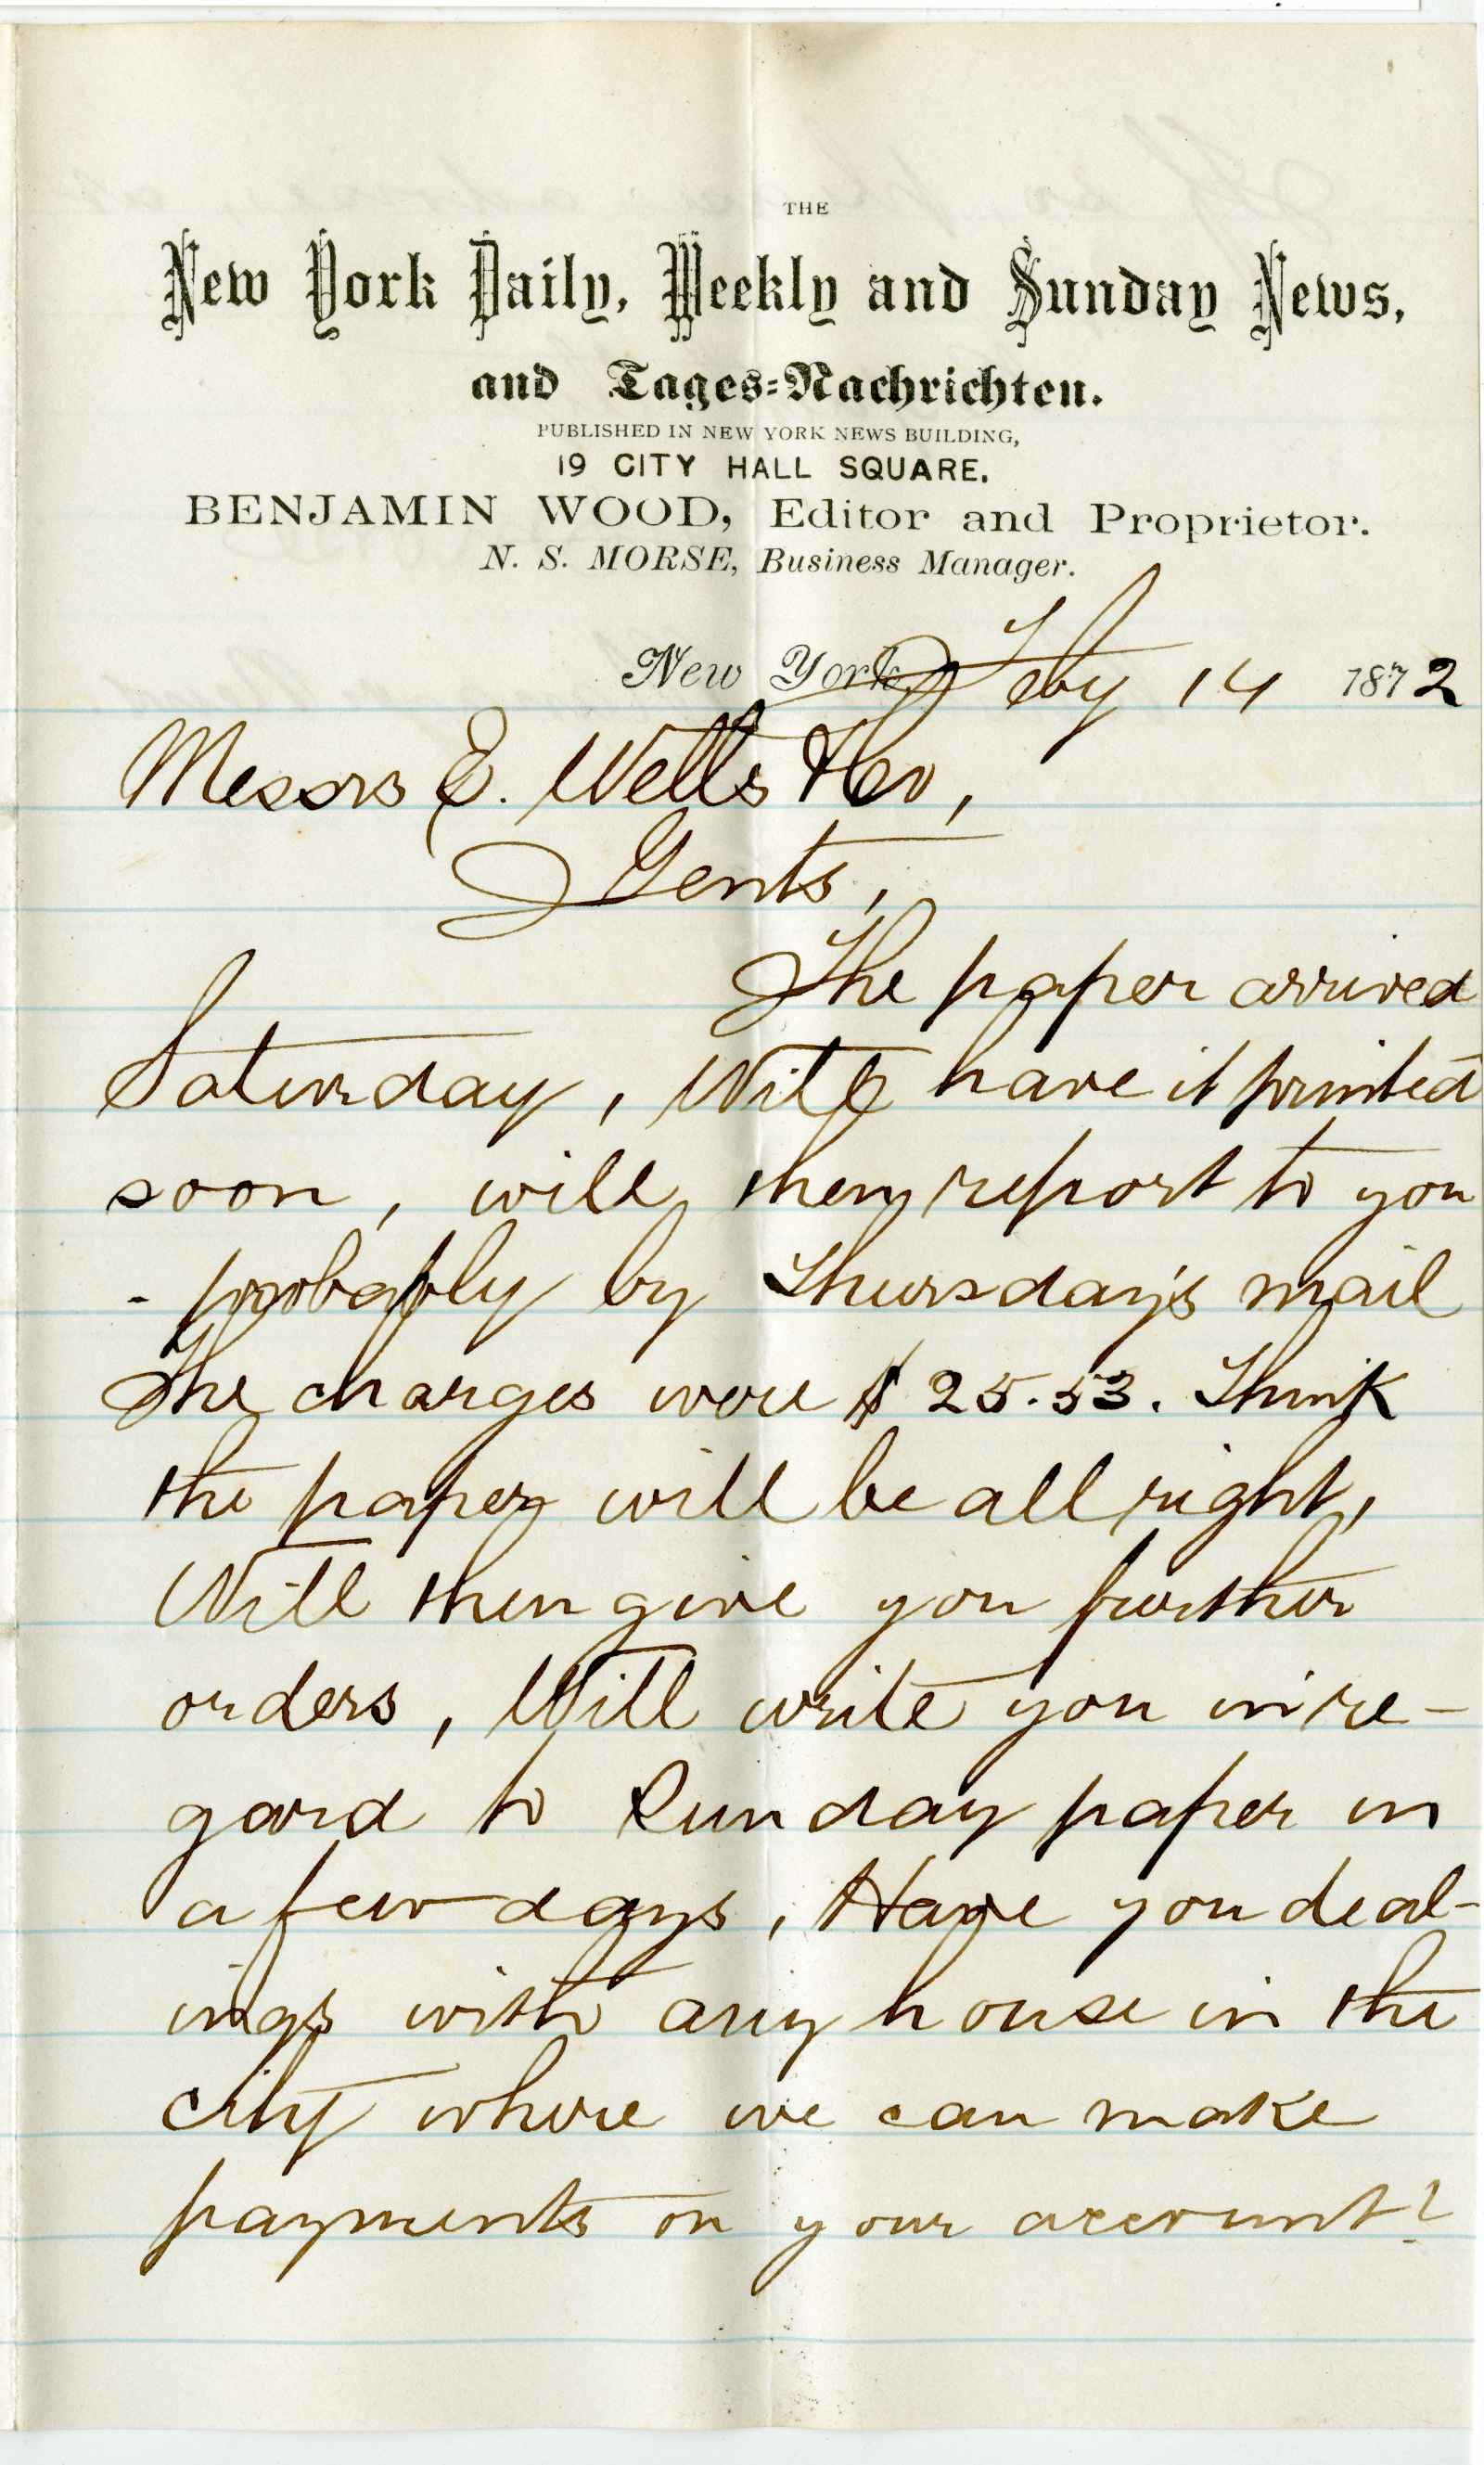 THE
New York Daily, Weekly and Sunday News,
and Tages=Nachrichten.
PUBLISHED IN NEW YORK NEWS BUILDING,
19 CITY HALL SQUARE.
BENJAMIN WOOD, Editor and Proprietor.
N. S. MORSE, Business Manager.
New York, Feby 14 1872
Messrs E. Wells &Co,
Gents,
The paper arrived
Saturday, Will have it printed
soon, will then report to you
- probably by Thursday's mail
The charges were $25.53. Think
the paper will be all right,
Will then give you further
orders, Will write you in re-
gard to Sunday paper in
a few days, Have you deal-
ings with any house in the
city where we can make
payments on your account?